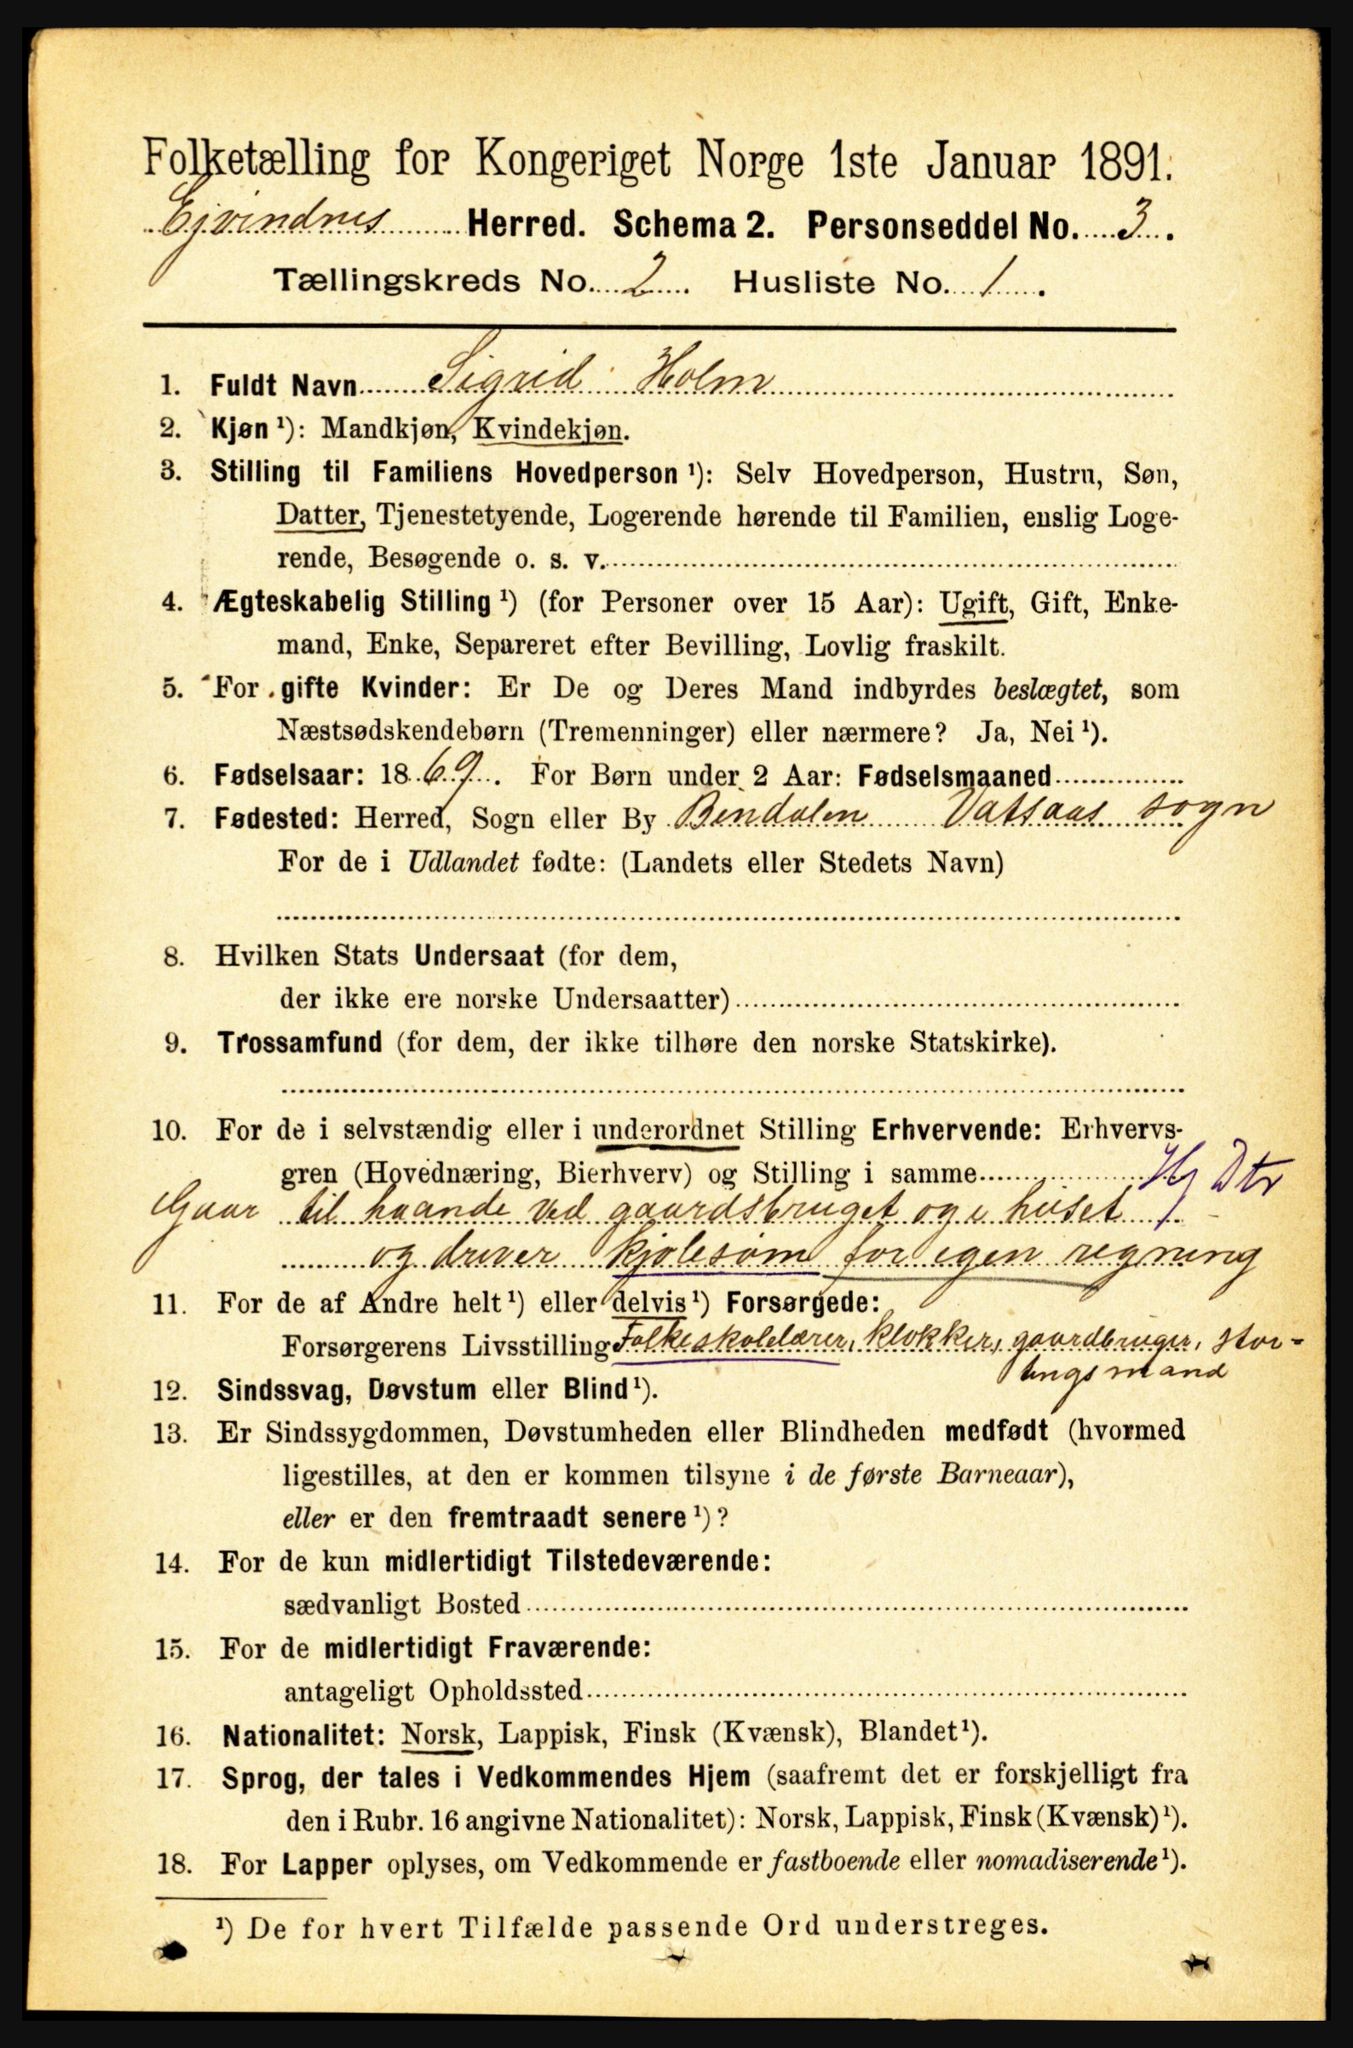 Folketælling for Kongeriget Norge 1ste Januar 1891.
Ejvindnes Herred. Schema 2. Personseddel No. 3.
Tællingskreds No. 2. Husliste No. 1.
1. Fuldt Navn Sigrid Holm
2. Kjøn ¹): Mandkjøn, Kvindekjøn.
3. Stilling til Familiens Hovedperson ¹): Selv Hovedperson, Hustru, Søn,
Datter, Tjenestetyende, Logerende hørende til Familien, enslig Loge-
rende, Besøgende o. s. v.
4. Ægteskabelig Stilling ¹) (for Personer over 15 Aar): Ugift, Gift, Enke-
mand, Enke, Separeret efter Bevilling, Lovlig fraskilt.
5. For gifte Kvinder: Er De og Deres Mand indbyrdes beslægtet, som
Næstsødskendebørn (Tremenninger) eller nærmere? Ja, Nei ¹).
6. Fødselsaar: 1869. For Børn under 2 Aar: Fødselsmaaned
7. Fødested: Herred, Sogn eller By Bindalen Vatsaas sogn
For de i Udlandet fødte: (Landets eller Stedets Navn)
8. Hvilken Stats Undersaat (for dem,
der ikke ere norske Undersaatter)
9. Trossamfund (for dem, der ikke tilhøre den norske Statskirke).
10. For de i selvstændig eller i underordnet Stilling Erhvervende: Erhvervs-
gren (Hovednæring, Bierhverv) og Stilling i samme Hj Dtr
Gaar til haande ved gaardsbruget og i huset
og driver kjolesøm for egen regning
11. For de af Andre helt ¹) eller delvis ¹) Forsørgede:
Forsørgerens Livsstilling Folkeskolelærer, klokker, gaardbruger, stor-
tingsmand
12. Sindssvag, Døvstum eller Blind ¹).
13. Er Sindssygdommen, Døvstumheden eller Blindheden medfødt (hvormed
ligestilles, at den er kommen tilsyne i de første Barneaar),
eller er den fremtraadt senere ¹)?
14. For de kun midlertidigt Tilstedeværende:
sædvanligt Bosted
15. For de midlertidigt Fraværende:
antageligt Opholdssted
16. Nationalitet: Norsk, Lappisk, Finsk (Kvænsk), Blandet ¹).
17. Sprog, der tales i Vedkommendes Hjem (saafremt det er forskjelligt fra
den i Rubr. 16 angivne Nationalitet): Norsk, Lappisk, Finsk (Kvænsk) ¹).
18. For Lapper oplyses, om Vedkommende er fastboende eller nomadiserende ¹).
¹) De for hvert Tilfælde passende Ord understreges.